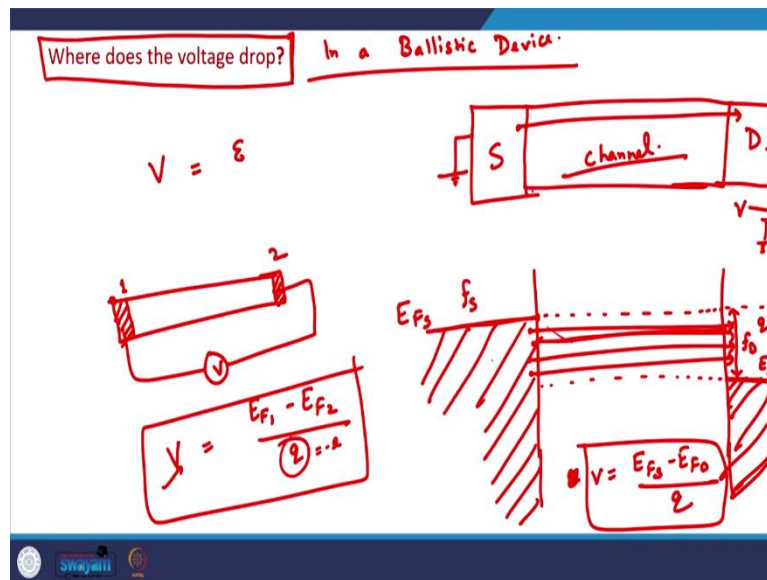 Where does the voltage drop?
In a Ballistic Device.
V = ε
S
channel.
D
V
1
2
V
V = E_F1 - E_F2 / q = -e
E_FS
f_S
q
f_D
E
V = E_FS - E_FD / q
swayam